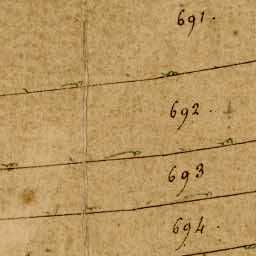 691.
692.
693
694.